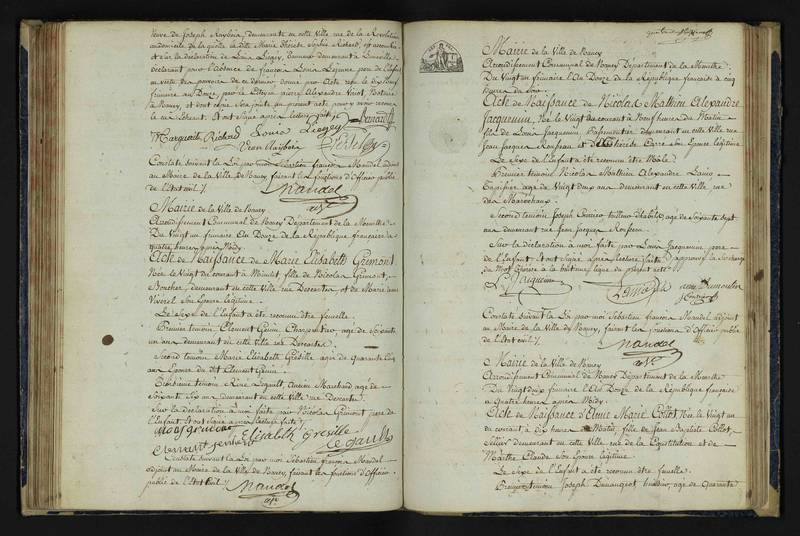 Veuve de Joseph demeurante en cette Ville rue de la Revolution
au domicile de laquelle la ditte Marie Thérèse Sophie Richard,
et d'après la déclaration de Louis demeurant à
déclarant par l'absence de françois Louis Lejeune pere de l'Enfant
en vertu du pouvoir de ce dernier donné par Acte reçu le dix
frimaire an Douze, par le Citoyen pierre Alexandre Notaire
à Nancy, et dont copie sera jointe au présent acte pour y avoir recours
le cas échéant. Et ont signé après lecture faite
Marguerite Richard Louis
Constaté suivant la Loi par moi Sébastien françois Mandel adjoint
au Maire de la Ville de Nancy, faisant les fonctions d'Officier public
de l'Etat civil
Mandel
Mairie de la Ville de Nancy
Arrondissement Communal de Nancy Département de la Meurthe
Du Vingt un frimaire l'an Douze de la République française à
quatre heures après Midy
Acte de Naissance de Marie Elisabeth Grimont
Née le Vingt du courant à Minuit, fille de Nicolas Grimont,
Boucher, demeurant en cette Ville rue Descartes, et de Marie anne
Viverel son Epouse légitime
Le Sexe de l'Enfant a été reconnu être femelle.
Premier temoin Clement Charpentier, agé de Soixante
un ans demeurant en cette Ville rue Descartes
Second temoin Marie Elisabeth Gresille agée de quarante cinq
ans Epouse du dit Clement
Troisième temoin René Legault, Ancien Marchand, agé de
Soixante Six ans demeurant en cette Ville rue Descartes.
Sur la déclaration à moi faite par Nicolas Grimont pere de
l'Enfant. Et ont signé après lecture faite
Elisabeth Gresille
Legault
Constaté suivant la Loi par moi Sébastien françois Mandel
adjoint au Maire de la Ville de Nancy, faisant les fonctions d'Officier
public de l'Etat Civil
Mandel
Mairie de la Ville de Nancy
Arrondissement Communal de Nancy Département de la Meurthe
Du Vingt un frimaire l'an Douze de la République française à cinq
heures du Soir
Acte de Naissance de Nicolas Mathieu Alexandre
Jacquemin, Né le Vingt du courant à Neuf heures du Matin
fils de Louis Jacquemin, demeurant en cette Ville rue
Jean Jacques Rousseau et de Thérèse Carré son Epouse légitime
Le Sexe de l'Enfant a été reconnu être Mâle.
Premier temoin Nicolas Mathieu Alexandre
agé de Vingt deux ans demeurant en cette Ville, rue
des Maréchaux
Second temoin Joseph tailleur d'habits, agé de Soixante Sept
ans demeurant rue Jean Jacques Rousseau
Sur la déclaration à moi faite par Louis Jacquemin pere
de l'Enfant. Et ont Signé après lecture faite. approuvé la Surcharge
du Mot Thérèse à la huitieme ligne du présent acte
Jacquemin
Constaté suivant la Loi par moi Sébastien françois Mandel adjoint
au Maire de la Ville de Nancy, faisant les fonctions d'Officier public
de l'Etat civil
Mandel
Mairie de la Ville de Nancy
Arrondissement Communal de Nancy Département de la Meurthe
Du Vingt deux frimaire l'an Douze de la République française
à Quatre heures après Midy
Acte de Naissance d'Elmie Marie Collot Née le Vingt un
du courant à dix heures Matin, fille de Jean Baptiste Collot
Sellier demeurant en cette Ville, rue de la Constitution et de
Marthe Claude son Epouse légitime
Le Sexe de l'Enfant a été reconnu être femelle
Premier temoin Joseph agé de Quarante